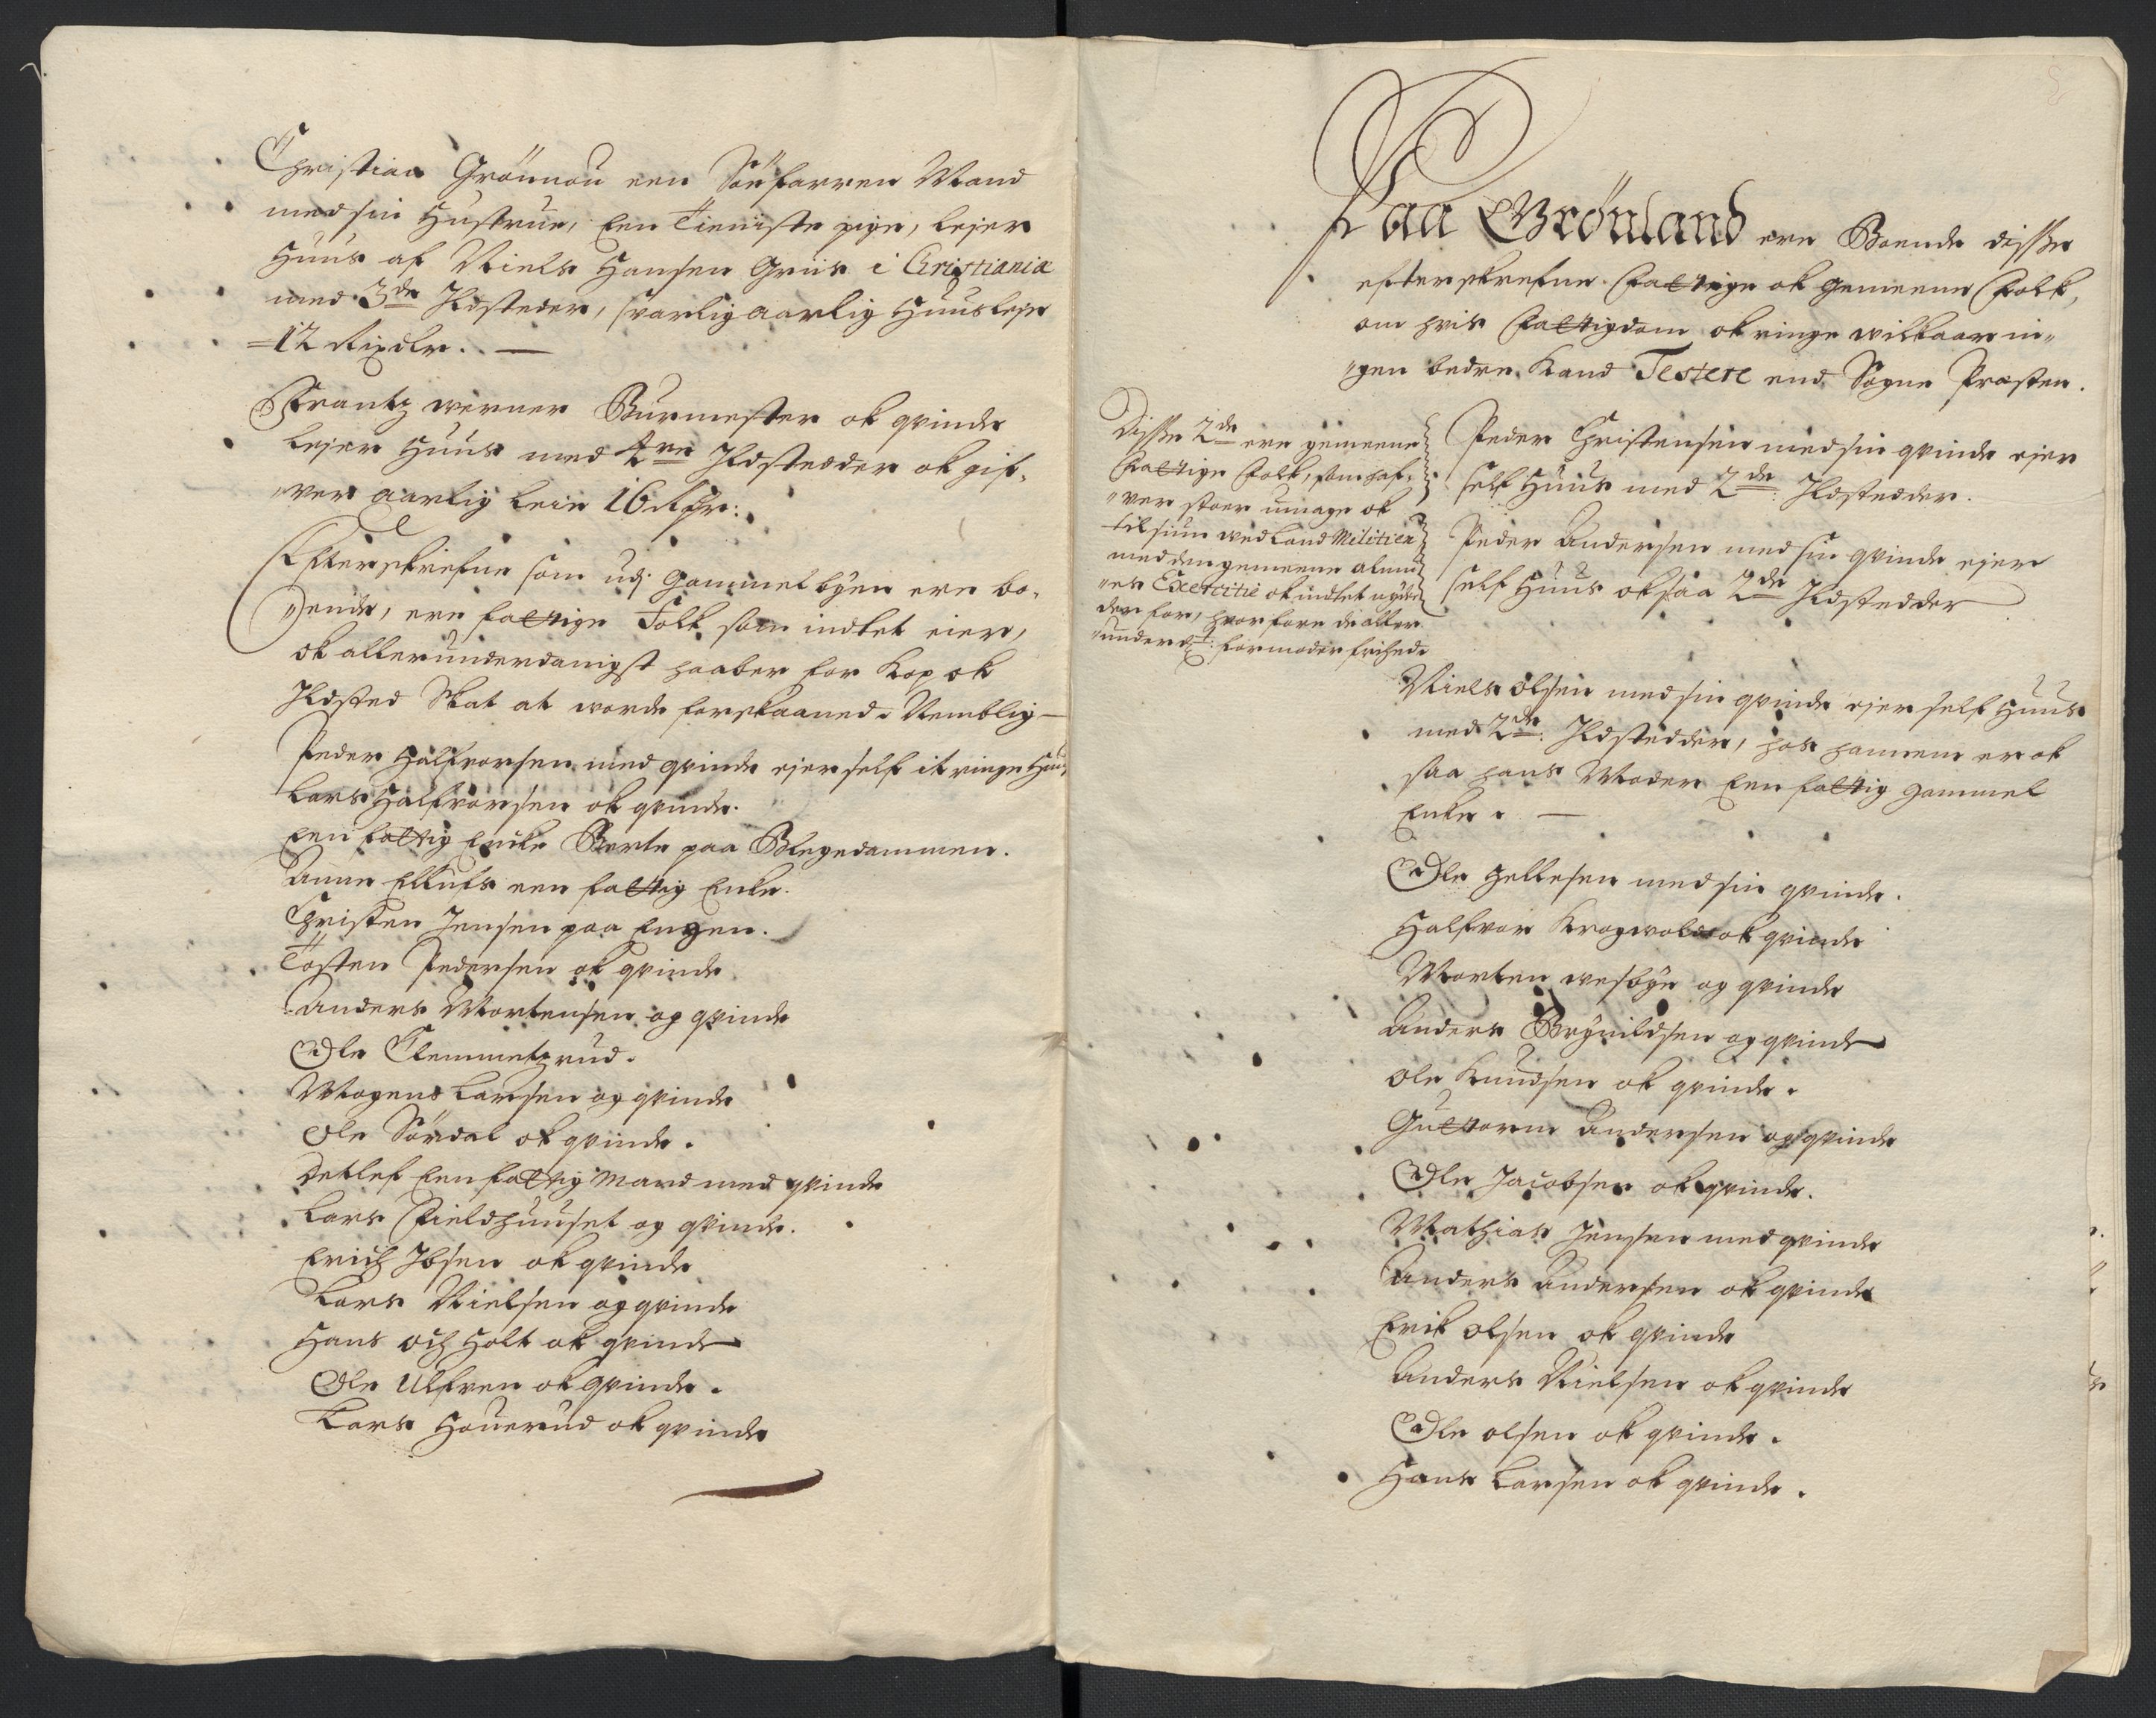 Christian Grönnou een Söefarren Mand
med sin Hustrue, Een Tieniste pige, lejer
Huus af Niels Hansen Griis i Christiania
med 3de Ildsteder, svarlig aarlig Huusleje
12 Rixdlr. —
Frantz werner Burmester ok qvinde
lejer Huus med 4re Ildstedder ok gif,
"ver aarlig leie 16 Rdr:
Efterskrefne som udj Gammelbyen ere bo,
"ende, ere fattige Folk som indtet eier,
ok allerunderdanigst haaber for Kop ok
Ildsted Skat at vorde forskaaned. Nemblig —
Peder Halfvorsen med qvinde ejer self it ringe Huus
Lars Halfvorsen ok qvinde.
Een fattig Encke Berte paa Blegedammen.
Anne Ellufs een fattig Enke.
Christen Jensen paa Engen.
Tosten Pedersen ok qvinde
Anders Mortensen og qvinde
Ole Clemmetzrud.
Mogens Larsen og qvinde
Ole Sördal ok qvinde.
Detlef Een fattig Mand med qvinde
Lars Fieldhuuset og qvinde.
Erich Ibsen ok qvinde
Lars Nielsen og qvinde
Hans och Holt ok qvinde
Ole Ulfven ok qvinde.
Lars Houerud ok qvinde
Paa Grönland ere Boende disse
efterskrefne Fattige ok gemeene Folk,
om hvis Fattigdom ok ringe wilkaar in,
"gen bedre Kand Testere end Sogne Præsten.
Disse 2de ere gemeene
Fattige Folk, som haf,
"ver stoer umage ok
tilsiun wed Land Militien
med den gemeene almu
"es Exercitie ok indtet nyder
der for, hvor fore de aller
"underdst: formoder frihed
Peder Christensen med sin qvinde ejer
self Huus med 2de: Ildstedder.
Peder Andersen med sin qvinde ejer
self Huus oksaa 2de Ildstedder
Niels Olsen med sin qvinde ejer self Huus
med 2de: Ildstedder, hos hannem er ok
saa hans Moder Een fattig gammel
Enke. —
Ole Hellesen med sin qvinde.
Halfvor Krogvold ok qvinde
Morten wesbye og qvinde
Anders Brynildsen og qvinde
Ole Knudsen ok qvinde.
Guttorm Andersen og qvinde
Ole Jacobsen ok qvinde.
Mathias Jensen med qvinde
Anders Andersen ok qvinde
Erik Olsen ok qvinde
Anders Nielsen ok qvinde
Ole Olsen ok qvinde.
Hans Larsen ok qvinde.